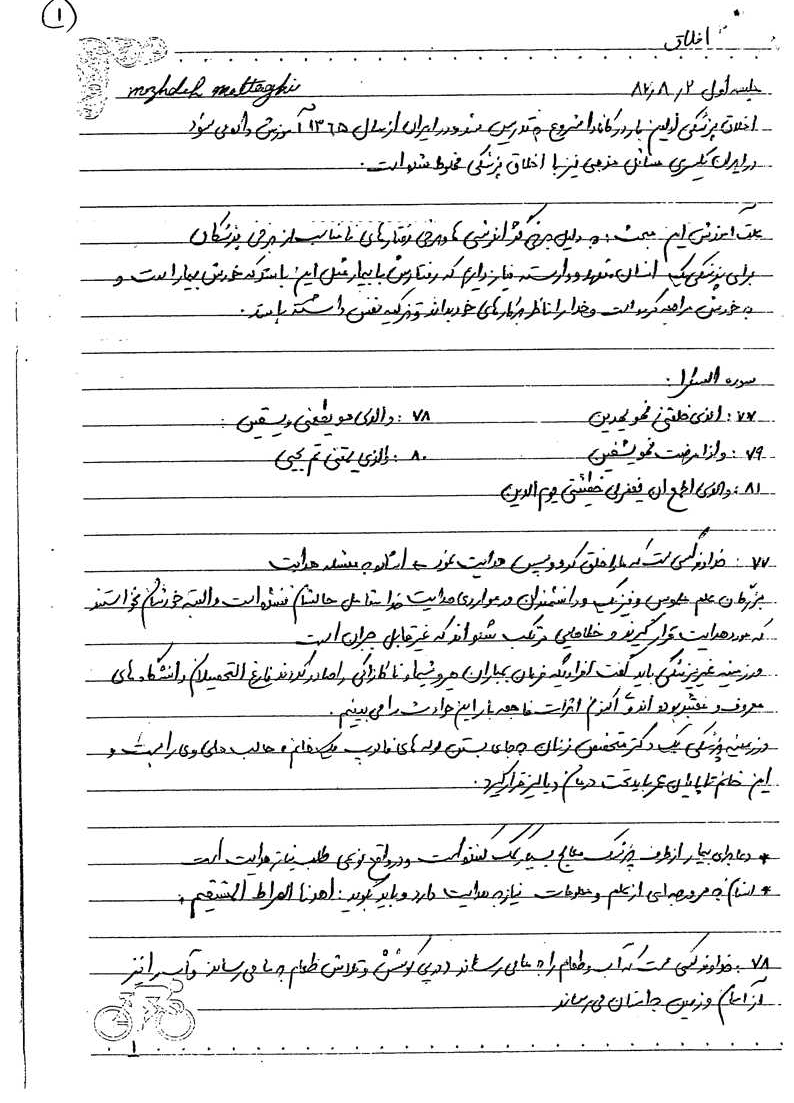 ۱
اخلاق
جلسه اول ۸۲/۸/۲ mozhdeh mottaghi
اخلاق پزشکی اولین بار در کانادا شروع به تدریس شد و در ایران از سال ۱۳۶۵ آموزش داده می شود
در ایران یکسری مسائل مذهبی نیز با اخلاق پزشکی مخلوط شده است.
علت آموزش این مبحث: به دلیل برخی گزارش ها و برخی رفتارهای نامناسب از برخی پزشکان
برای پزشکی یک انسان متعهد و وارسته نیاز داریم که رفتارش با بیمار مثل این باشد که خودش بیمار است و
به خودش مراجعه کرده است و خدا را ناظر بر کارهای خود بداند و تزکیه نفس داشته باشد.
سوره الشعرا:
۷۷: الذی خلقنی فهو یهدین ۷۸: والذی هو یطعمنی و یسقین:
۷۹: و اذا مرضت فهو یشفین ۸۰: والذی یمتنی ثم یحیی
۸۱: والذی اطمع ان یغفرلی خطیئتی یوم الدین
۷۷: خداوند کسی است که ما را خلق کرد و سپس هدایت نمود ← اشاره به مسئله هدایت
بزرگان علم طوسی و فیزیک و دانشمندان در مواردی هدایت خدا شامل حالشان نشده است و البته خودشان نخواستند
که مورد هدایت قرار گیرند و خطاهایی مرتکب شده اند که غیر قابل جبران است
در زمینه غیر پزشکی باید گفت افرادیکه فرمان بمباران هیروشیما و ناکازاکی را صادر کردند فارغ التحصیلان دانشگاه های
معروف و معتبر بوده اند و اکنون اثرات فاجعه بار این حوادث را می بینیم.
در زمینه پزشکی یک دکتر متخصص زنان به جای بستن لوله های فالوپ یک خانم حالب های وی را بست و
این خانم تا پایان عمر باید تحت درمان دیالیز قرار گیرد.
* دعا برای بیمار از طرف پزشک معالج بسیار کمک کننده است و در واقع نوعی طلب نیاز هدایت است
* انسان در هر مرحله ای از علم و معلومات نیاز به هدایت دارد و باید بگوید: اهدنا الصراط المستقیم.
۷۸: خداوند کسی است که آب و طعام را به ما می رساند در پی کوشش و تلاش طعام به ما می رساند و آب را نیز
از آسمان و زمین به انسان می رساند
۱